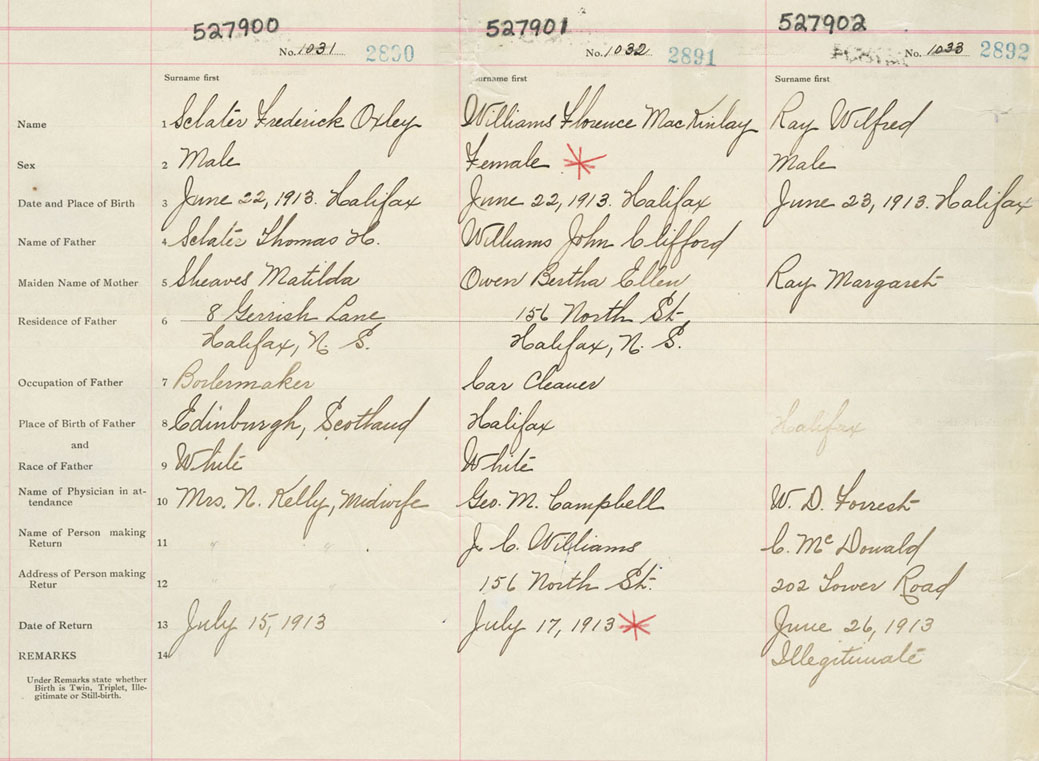 527900 527901 527902
No. 1031 2890 No. 1032 2891 No. 1033 2892
Surname first Surname first Surname first
Name 1 Sclater Frederick Oxley Williams Florence MacKinlay Ray Wilfred
Sex 2 Male Female Male
Date and Place of Birth 3 June 22, 1913. Halifax June 22, 1913. Halifax June 23, 1913. Halifax
Name of Father 4 Sclater Thomas H. Williams John Clifford
Maiden Name of Mother 5 Sheaves Matilda Owen Bertha Ellen Ray Margaret
Residence of Father 6 8 Gerrish Lane 156 North St.
Halifax, N. S. Halifax, N. S.
Occupation of Father 7 Boilermaker Car Cleaner
Place of Birth of Father 8 Edinburgh, Scotland Halifax Halifax
and
Race of Father 9 White White
Name of Physician in at-
tendance 10 Mrs. N. Kelly, Midwife Geo. M. Campbell W. D. Forrest
Name of Person making
Return 11 " " J. C. Williams C. McDonald
Address of Person making
Retur 12 156 North St. 202 Tower Road
Date of Return 13 July 15, 1913 July 17, 1913 June 26, 1913
REMARKS 14 Illegitimate
Under Remarks state whether
Birth is Twin, Triplet, Ille-
gitimate or Still-birth.